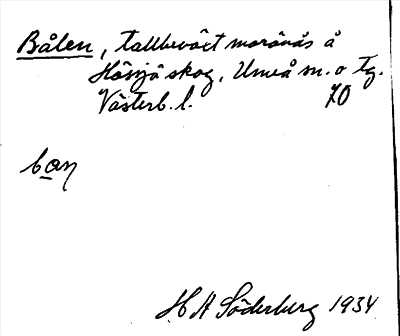 Bålen, tallbevåct moränås å
Hössjö skog, Umeå sn. o tg.
Västerb. l. 70
bɑn
H A Söderberg 1934